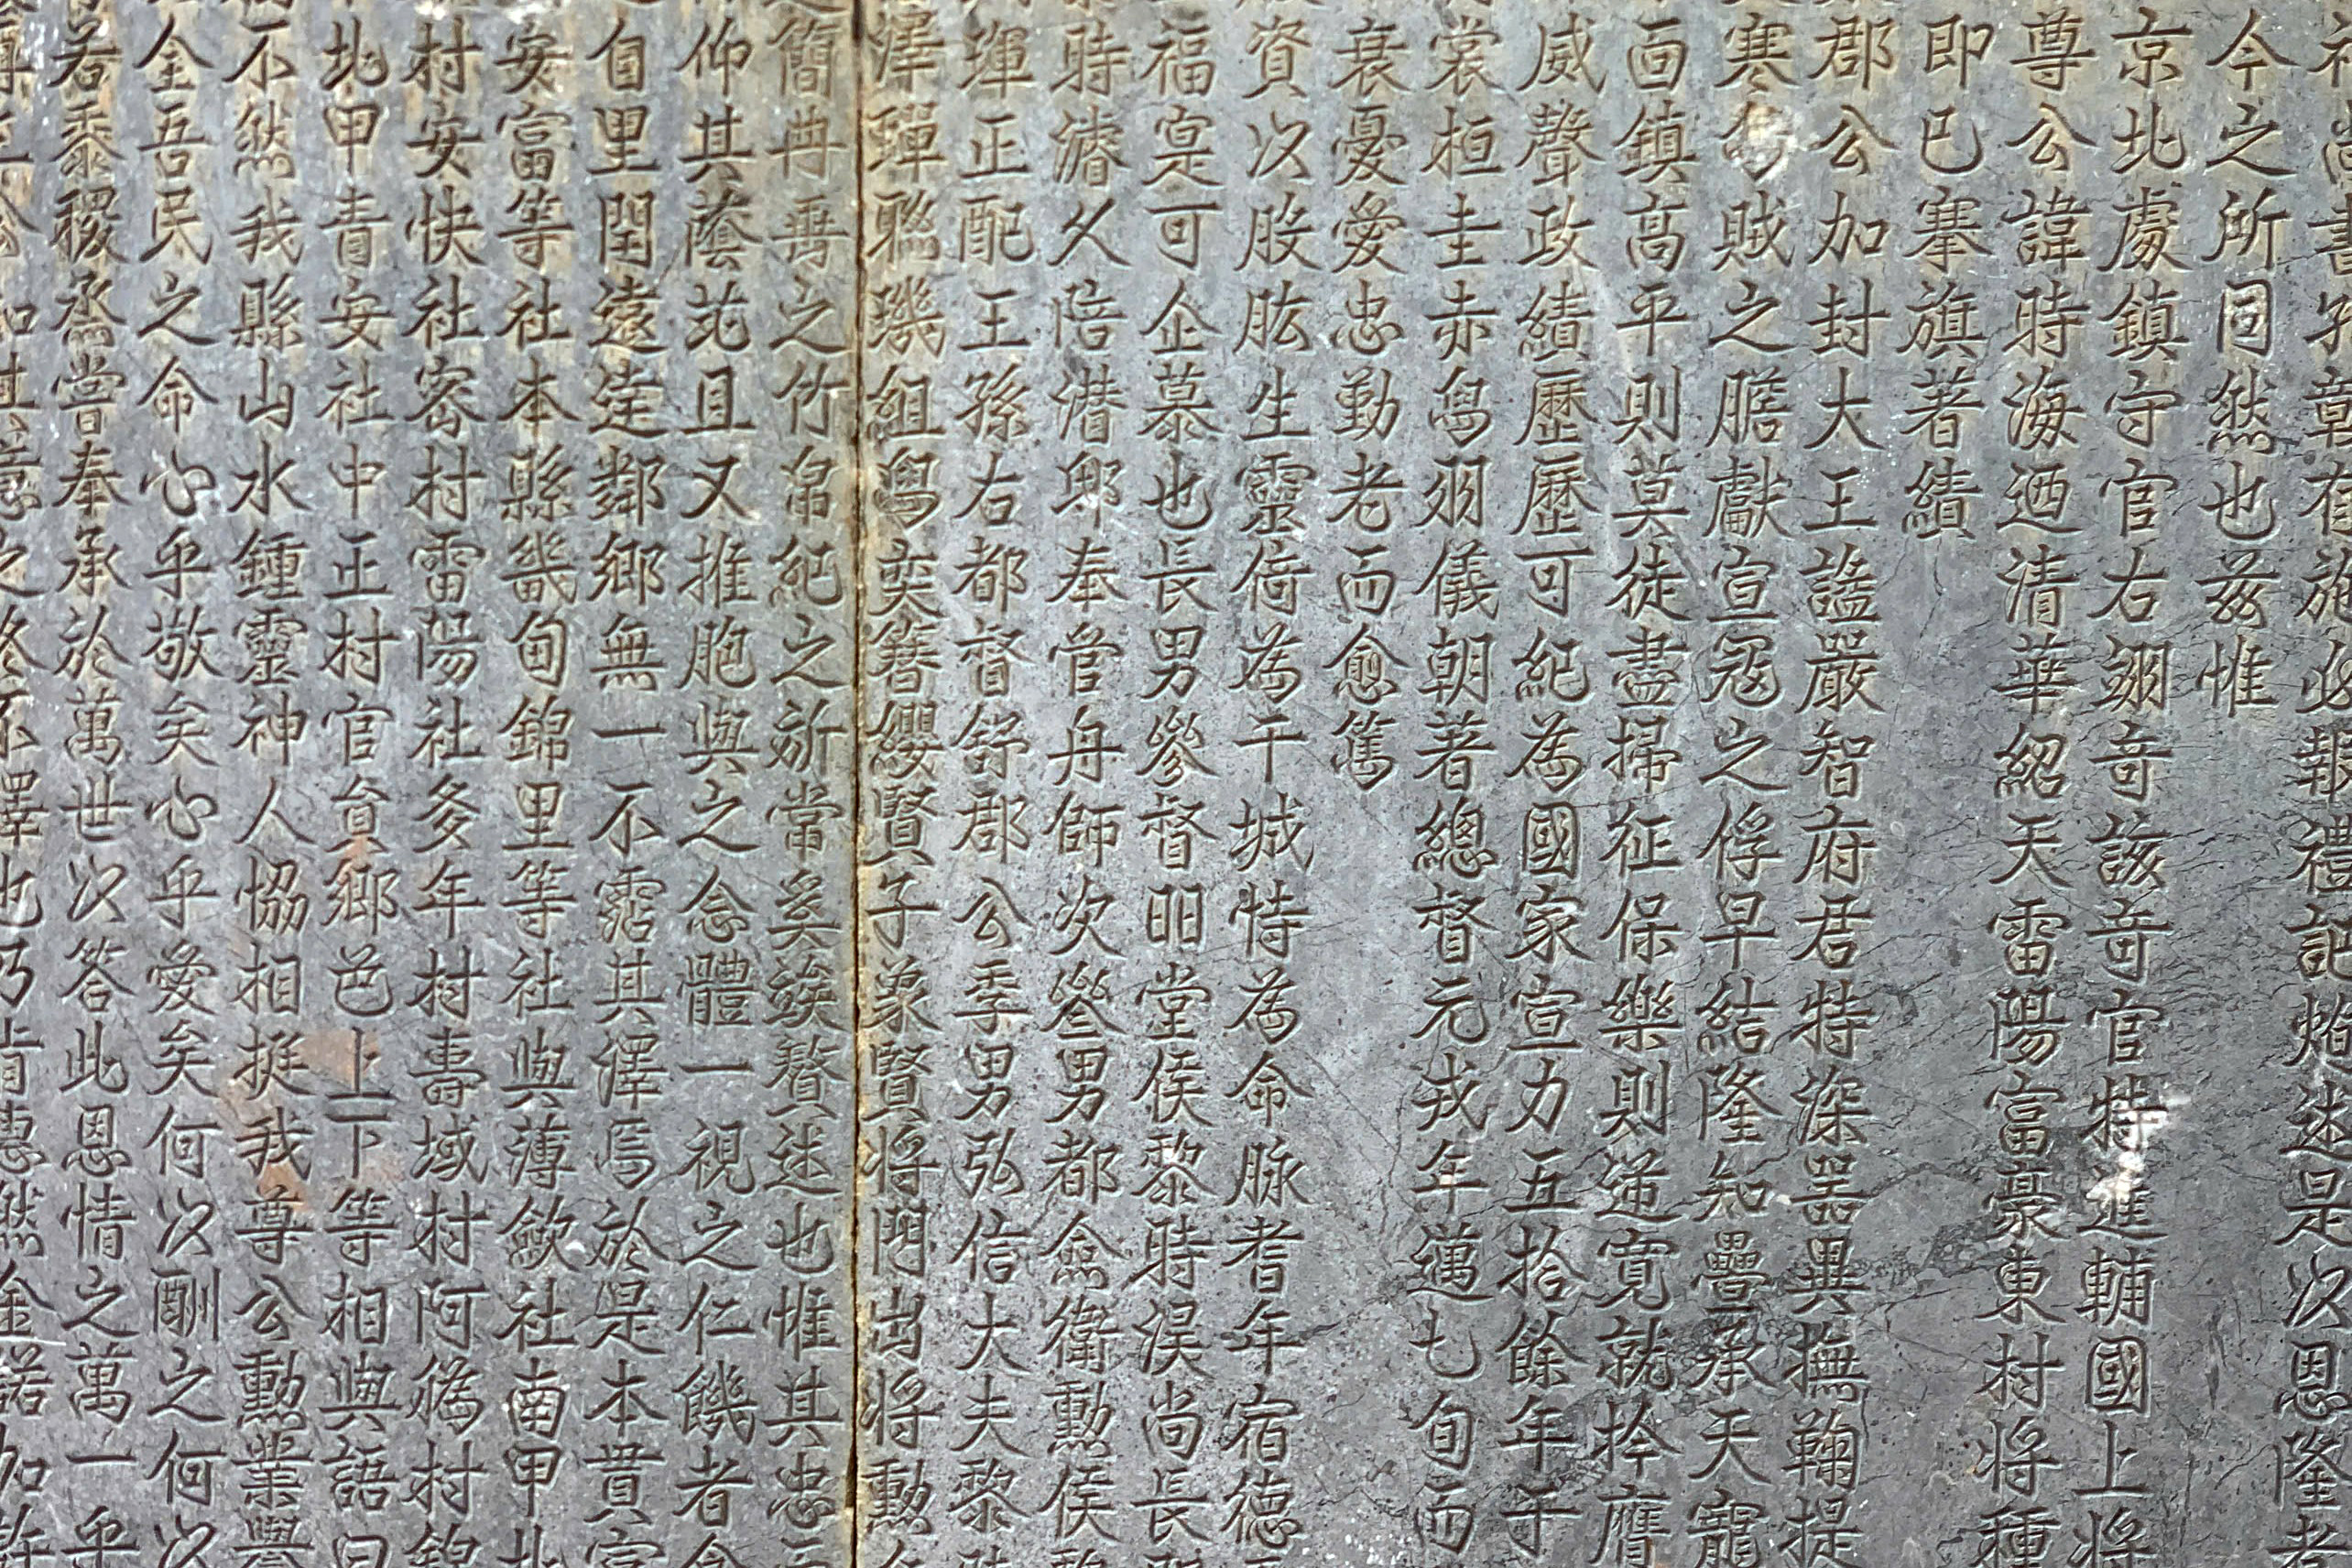 書有施必報禮記焰述是以恩隆者
今之所同然也茲惟
京北處鎮守官右翊奇該奇官特進輔國上將
尊公諱時海迺清華紹天雷陽富豪東村將種
即巴搴旗著績
郡公加封大王謚嚴智府君特深器異撫鞠提
寒賊之膽獻宣冦之俘早結隆知疊承天寵
面鎮高平則莫徒盡掃征保樂則逆寬就擒膺
威聲政績歷歷可紀為國家宣力五拾餘年于
裳桓圭赤舄羽儀朝著總督元戎年邁七旬而
衰憂愛忠勤老而愈篤
資以股肱生靈倚為干城恃為命脉耆年宿德
福寔可企慕也長男參督明堂侯黎時淏尚長
時濬久陪潜邸奉管舟師次叄男都僉衛勲侯黎
㻶正配王孫右都督舒郡公季男弘信大夫黎
澤蟬聯璣組舄奕簪纓賢子象賢將門出將勲
簡冊垂之竹帛紀之所當矣竢贅述也惟其忠
仰其蔭芘且又推胞與之念體一視之仁饑者
自里閈遠迬鄰鄉無一不霑其澤焉於是本貫
安富等社本縣畿甸錦里等社與薄歛社南甲北
村安快社宻村雷陽社多年村壽域村阿㵋村錦
北甲青安社中正村官員鄉邑上下等相與語曰
不然我縣山水鍾靈神人恊相挺我尊公勲業譽
全吾民之命心乎敬矣心乎愛矣何以酬之何以
若黍稷烝甞奉承於萬世以答此恩情之萬一乎